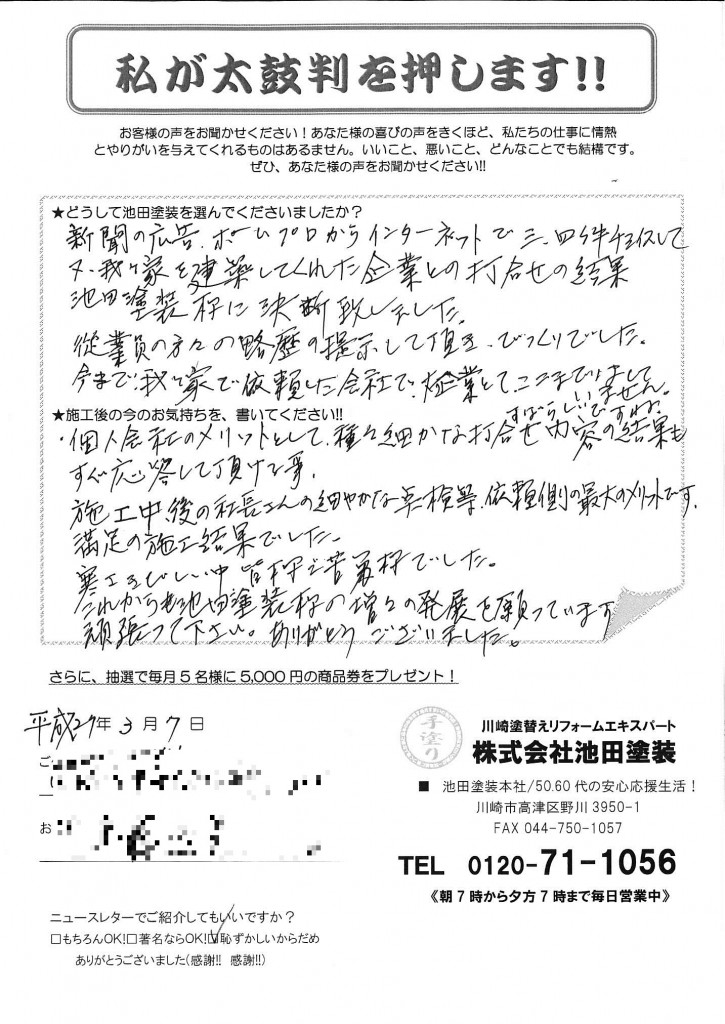 私が太鼓判を押します!!
お客様の声をお聞かせください！あなた様の喜びの声をきくほど、私たちの仕事に情熱
とやりがいを与えてくれるものはあるません。いいこと、悪いこと、どんなことでも結構です。
ぜひ、あなた様の声をお聞かせください!!
★どうして池田塗装を選んでくださいましたか？
新聞の広告、ホームプロからインターネットで三、四ケ件チョイスして
又、我が家を建築してくれた企業との打合せの結果
池田塗装様に決断致しました。
従業員の方々の略歴の提示して頂き、びっくりでした。
今まで、我が家で依頼した会社で、企業として、ここまでやりまして
いません。
すばらしいですね。
★施工後の今のお気持ちを、書いてください!!
・個人会社のメリットとして、種々細かな打合せ内容の結果も
すぐ応答して頂けた事、
施工中、後の社長さんの細やかな点検等、依頼側の最大のメリットです。
満足の施工結果でした。
寒さきびしい中皆様ご苦労様でした。
これからも池田塗装様の増々の発展を願っています
頑張って下さい。ありがとうございました。
さらに、抽選で毎月5名様に5,000円の商品券をプレゼント！
平成27年3月7日
ご
お
手塗り
川崎塗替えリフォームエキスパート
株式会社池田塗装
■ 池田塗装本社/50.60代の安心応援生活！
川崎市高津区野川3950-1
FAX 044-750-1057
TEL 0120-71-1056
《朝7時から夕方7時まで毎日営業中》
ニュースレターでご紹介してもいいですか？
□もちろんOK!□著名ならOK!☑恥ずかしいからだめ
ありがとうございました(感謝!! 感謝!!)